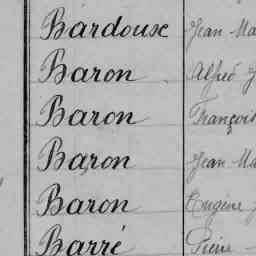 Bardoux Jean Ma
Baron Alfred J
Baron François
Baron Jean Ma
Baron Eugène
Barré Pierre